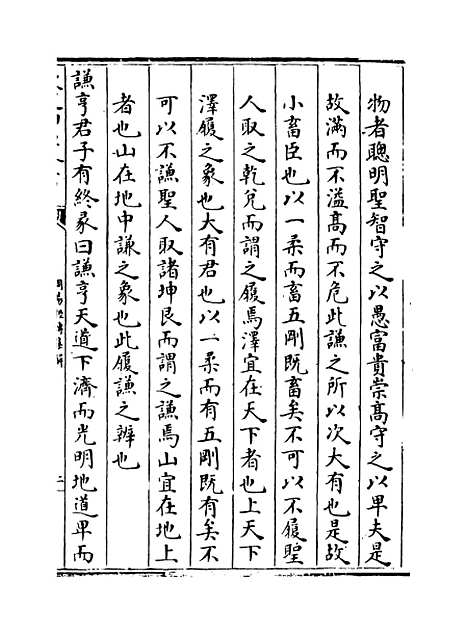 物者聰明聖智守之以愚富貴崇髙守之以卑夫是
故滿而不溢髙而不危此謙之所以次大有也是故
小畜臣也以一柔而畜五剛既畜矣不可以不履聖
人取之乾兊而謂之履焉澤宜在天下者也上天下
澤履之象也大有君也以一柔而有五剛既有矣不
可以不謙聖人取諸坤艮而謂之謙焉山宜在地上
者也山在地中謙之象也此履謙之辨也
謙亨君子有終彖曰謙亨天道下濟而光明地道卑而